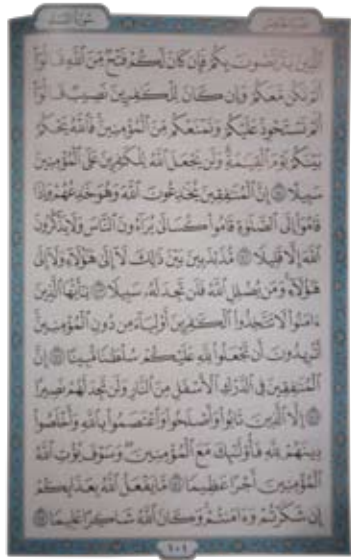 سورة النساء
الجزء الخامس
الذين يتربصون بكم فإن كان لكم فتح من الله قالوا
ألم نكن معكم وإن كان للكافرين نصيب قالوا
ألم نستحوذ عليكم ونمنعكم من المؤمنين فالله يحكم
بينكم يوم القيمة ولن يجعل الله للكفرين على المؤمنين
سبيلا ١٤١ إن المنفقين يخدعون الله وهو خدعهم وإذا
قاموا إلى الصلوة قاموا كسالى يراءون الناس ولا يذكرون
الله إلا قليلا ١٤٢ مذبذبين بين ذلك لا إلى هؤلاء ولا إلى
هؤلاء ومن يضلل الله فلن تجد له سبيلا ١٤٣ يأيها الذين
ءامنوا لا تتخذوا الكفرين أولياء من دون المؤمنين
أتريدون أن تجعلوا لله عليكم سلطنا مبينا ١٤٤ إن
المنفقين في الدرك الأسفل من النار ولن تجد لهم نصيرا
١٤٥ إلا الذين تابوا وأصلحوا واعتصموا بالله وأخلصوا
دينهم لله فأولئك مع المؤمنين وسوف يؤت الله
المؤمنين أجرا عظيما ١٤٦ ما يفعل الله بعذابكم
إن شكرتم وءامنتم وكان الله شاكرا عليما ١٤٧
١٠١